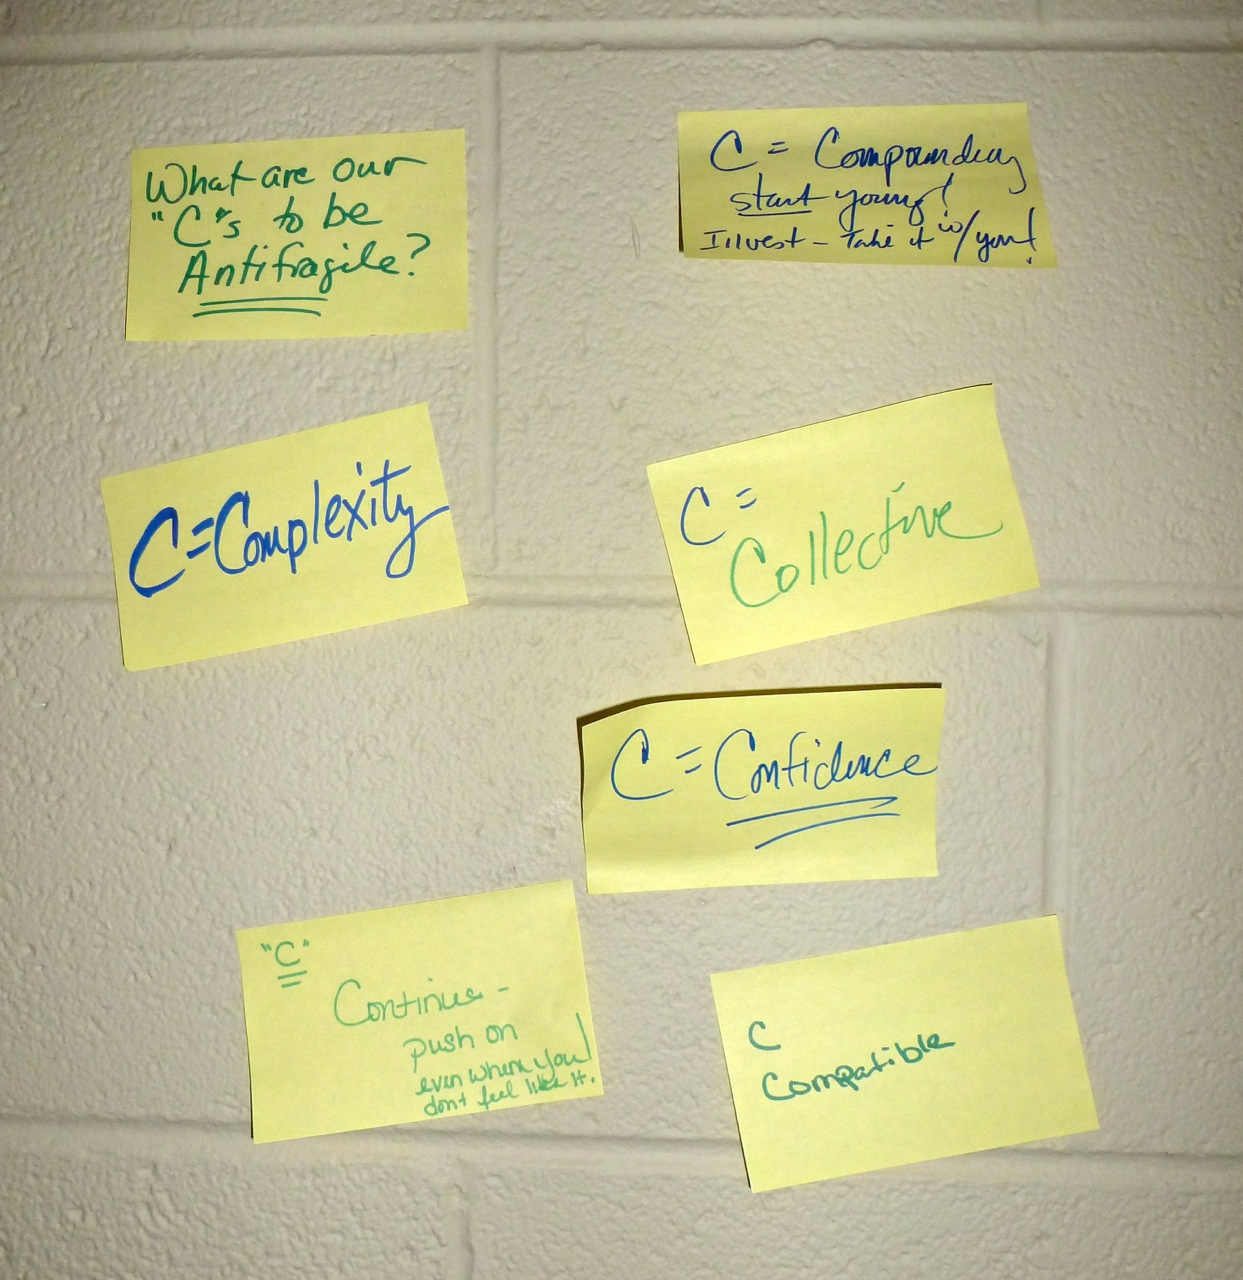 What are our
"C"s to be
Antifragile?
C = Compounding
start young!
Invest - Take it w/you!
C=Complexity
C =
Collective
C = Confidence
"C"
Continue -
push on
even when you
don't feel like it.
C
Compatible